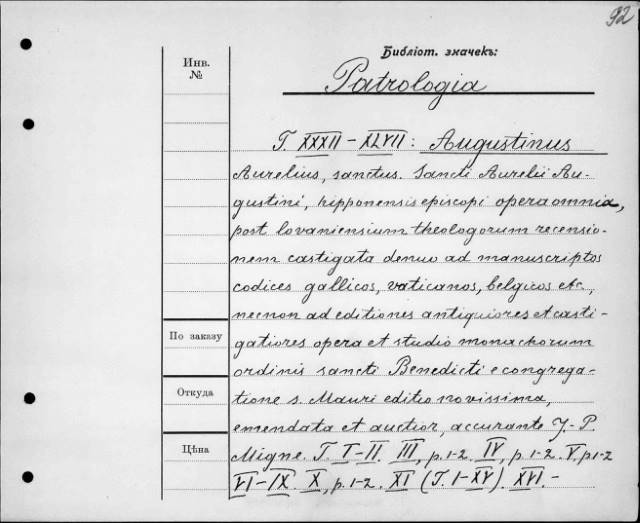 92
Библіот. значекъ:
Инв. №
Patrologia
T. XXXII – XLVII: Augustinus
Aurelius, sanctus. Sancti Aurelii Au-
gustini, hipponensis episcopi opera omnia,
post lovaniensium theologorum recensio-
nem castigata denuo ad manuscriptos
codices gallicos, vaticanos, belgicos etc.,
necnon ad editiones antiquiores et casti-
По заказу
gatiores opera et studio monachorum
ordinis sancti Benedicti e congrega-
Откуда
tione s. Mauri editio novissima,
emendata et auctior, accurante J.-P.
Цѣна
Migne. T. I–II. III, p. 1-2. IV, p. 1-2. V, p. 1-2
VI–IX. X, p. 1-2. XI (T. I–XV). XVI. –